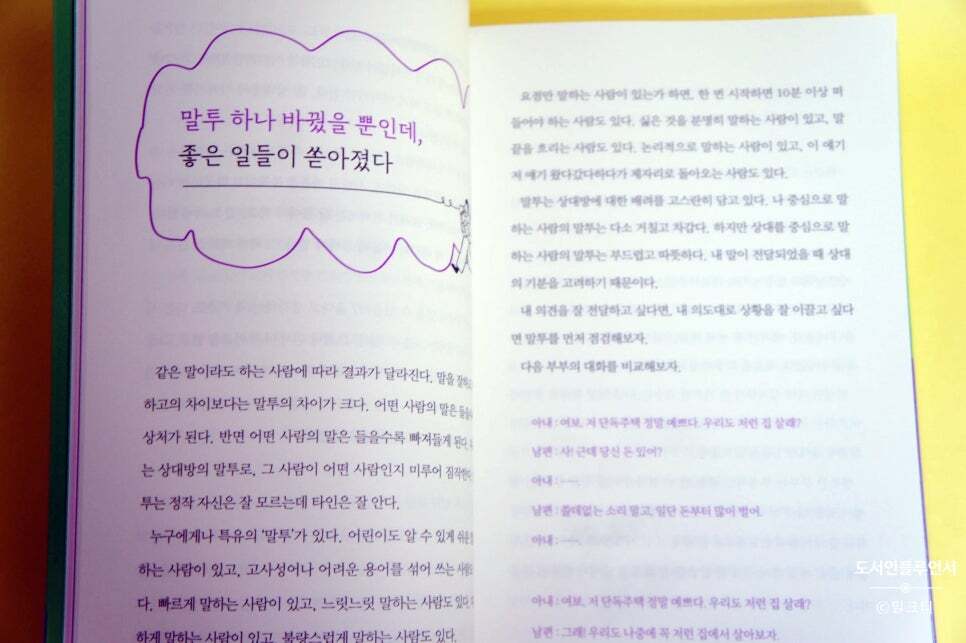 말투 하나 바꿨을 뿐인데,
좋은 일들이 쏟아졌다
같은 말이라도 하는 사람에 따라 결과가 달라진다. 말을
하고의 차이보다는 말투의 차이가 크다. 어떤 사람의 말은
상처가 된다. 반면 어떤 사람의 말은 들을수록 빠져들게 된다.
는 상대방의 말투로, 그 사람이 어떤 사람인지 미루어
투는 정작 자신은 잘 모르는데 타인은 잘 안다.
누구에게나 특유의 ‘말투’가 있다. 어린이도 알 수 있게
하는 사람이 있고, 고사성어나 어려운 용어를 섞어 쓰는
다. 빠르게 말하는 사람이 있고, 느릿느릿 말하는 사람도 있다.
하게 말하는 사람이 있고, 불량스럽게 말하는 사람도 있다.
요점만 말하는 사람이 있는가 하면, 한 번 시작하면 10분 이상 떠
들어야 하는 사람도 있다. 싫은 것을 분명히 말하는 사람이 있고, 말
끝을 흐리는 사람도 있다. 논리적으로 말하는 사람이 있고, 이 얘기
저 얘기 왔다갔다하다가 제자리로 돌아오는 사람도 있다.
말투는 상대방에 대한 배려를 고스란히 담고 있다. 나 중심으로 말
하는 사람의 말투는 다소 거칠고 차갑다. 하지만 상대를 중심으로 말
하는 사람의 말투는 부드럽고 따뜻하다. 내 말이 전달되었을 때 상대
의 기분을 고려하기 때문이다.
내 의견을 잘 전달하고 싶다면, 내 의도대로 상황을 잘 이끌고 싶다
면 말투를 먼저 점검해보자.
다음 부부의 대화를 비교해보자.
아내 : 여보, 저 단독주택 정말 예쁘다. 우리도 저런 집 살래?
남편 : 사! 근데 당신 돈 있어?
아내 : ──.
남편 : 쓸데없는 소리 말고, 일단 돈부터 많이 벌어.
아내 : ──.
아내 : 여보, 저 단독주택 정말 예쁘다. 우리도 저런 집 살래?
남편 : 그래! 우리도 나중에 꼭 저런 집에서 살아보자.
도서인플루언서
©밍크티